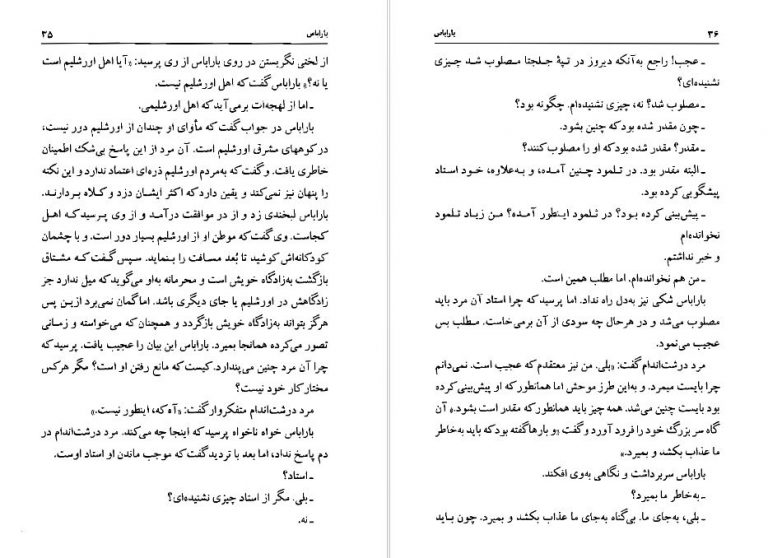 باراباس
۳۵
از لختی نگریستن در روی باراباس از وی پرسید: «آیا اهل اورشلیم است
یا نه؟» باراباس گفت که اهل اورشلیم نیست.
ـ اما از لهجه‌ات برمی‌آید که اهل اورشلیمی.
باراباس در جواب گفت که مأوای او چندان از اورشلیم دور نیست،
در کوههای مشرق اورشلیم است. آن مرد از این پاسخ بی‌شک اطمینان
خاطری یافت. و گفت که به‌مردم اورشلیم ذره‌ای اعتماد ندارد و این نکته
را پنهان نیز نمی‌کند و یقین دارد که اکثر ایشان دزد و کلاه بردارند.
باراباس لبخندی زد و از در موافقت درآمد و از وی پرسید که اهل
کجاست. وی گفت که موطن او از اورشلیم بسیار دور است. و با چشمان
کودکانه‌اش کوشید تا بُعد مسافت را بنماید. سپس گفت که مشتاق
بازگشت به‌زادگاه خویش است و محرمانه به‌او می‌گوید که میل ندارد جز
زادگاهش در اورشلیم یا جای دیگری باشد. اما گمان نمی‌برد ازین پس
هرگز بتواند به‌زادگاه خویش بازگردد و همچنان که می‌خواسته و زمانی
تصور می‌کرده همانجا بمیرد. باراباس این بیان را عجیب یافت. پرسید که
چرا آن مرد چنین می‌پندارد. کیست که مانع رفتن او است؟ مگر هرکس
مختار کار خود نیست؟
مرد درشت‌اندام متفکروار گفت: «آه که، اینطور نیست.»
باراباس خواه ناخواه پرسید که اینجا چه می‌کند. مرد درشت‌اندام در
دم پاسخ نداد، اما بعد با تردید گفت که موجب ماندن او استاد اوست.
ـ استاد؟
ـ بلی. مگر از استاد چیزی نشنیده‌ای؟
ـ نه.
۳۶
باراباس
ـ عجب! راجع به‌آنکه دیروز در تپهٔ جلجتا مصلوب شد چیزی
نشنیده‌ای؟
ـ مصلوب شد؟ نه، چیزی نشنیده‌ام. چگونه بود؟
ـ چون مقدر شده بود که چنین بشود.
ـ مقدر؟ مقدر شده بود که او را مصلوب کنند؟
ـ البته مقدر بود. در تلمود چنین آمده، و به‌علاوه، خود استاد
پیشگویی کرده بود.
ـ پیش‌بینی کرده بود؟ در تلمود اینطور آمده؟ من زیاد تلمود
نخوانده‌ام
و خبر نداشتم.
ـ من هم نخوانده‌ام. اما مطلب همین است.
باراباس شکی نیز به‌دل راه نداد. اما پرسید که چرا استاد آن مرد باید
مصلوب می‌شد و در هرحال چه سودی از آن برمی‌خاست. مطلب بس
عجیب می‌نمود.
مرد درشت‌اندام گفت: «بلی. من نیز معتقدم که عجیب است. نمی‌دانم
چرا بایست میمرد. و به‌این طرز موحش اما همانطور که او پیش‌بینی کرده
بود بایست چنین می‌شد. همه چیز باید همانطور که مقدر است بشود.» آن
گاه سر بزرگ خود را فرود آورد و گفت «و بارها گفته بود که باید به‌خاطر
ما عذاب بکشد و بمیرد.»
باراباس سربرداشت و نگاهی به‌وی افکند.
ـ به‌خاطر ما بمیرد؟
ـ بلی، به‌جای ما. بی‌گناه به‌جای ما عذاب بکشد و بمیرد. چون باید